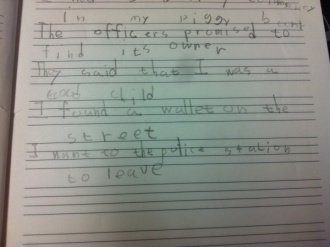 In my piggy bank
The officers promised to
find its owner
They said that I was a
good child
I found a wallet on the
street
I want to the police station
to leave